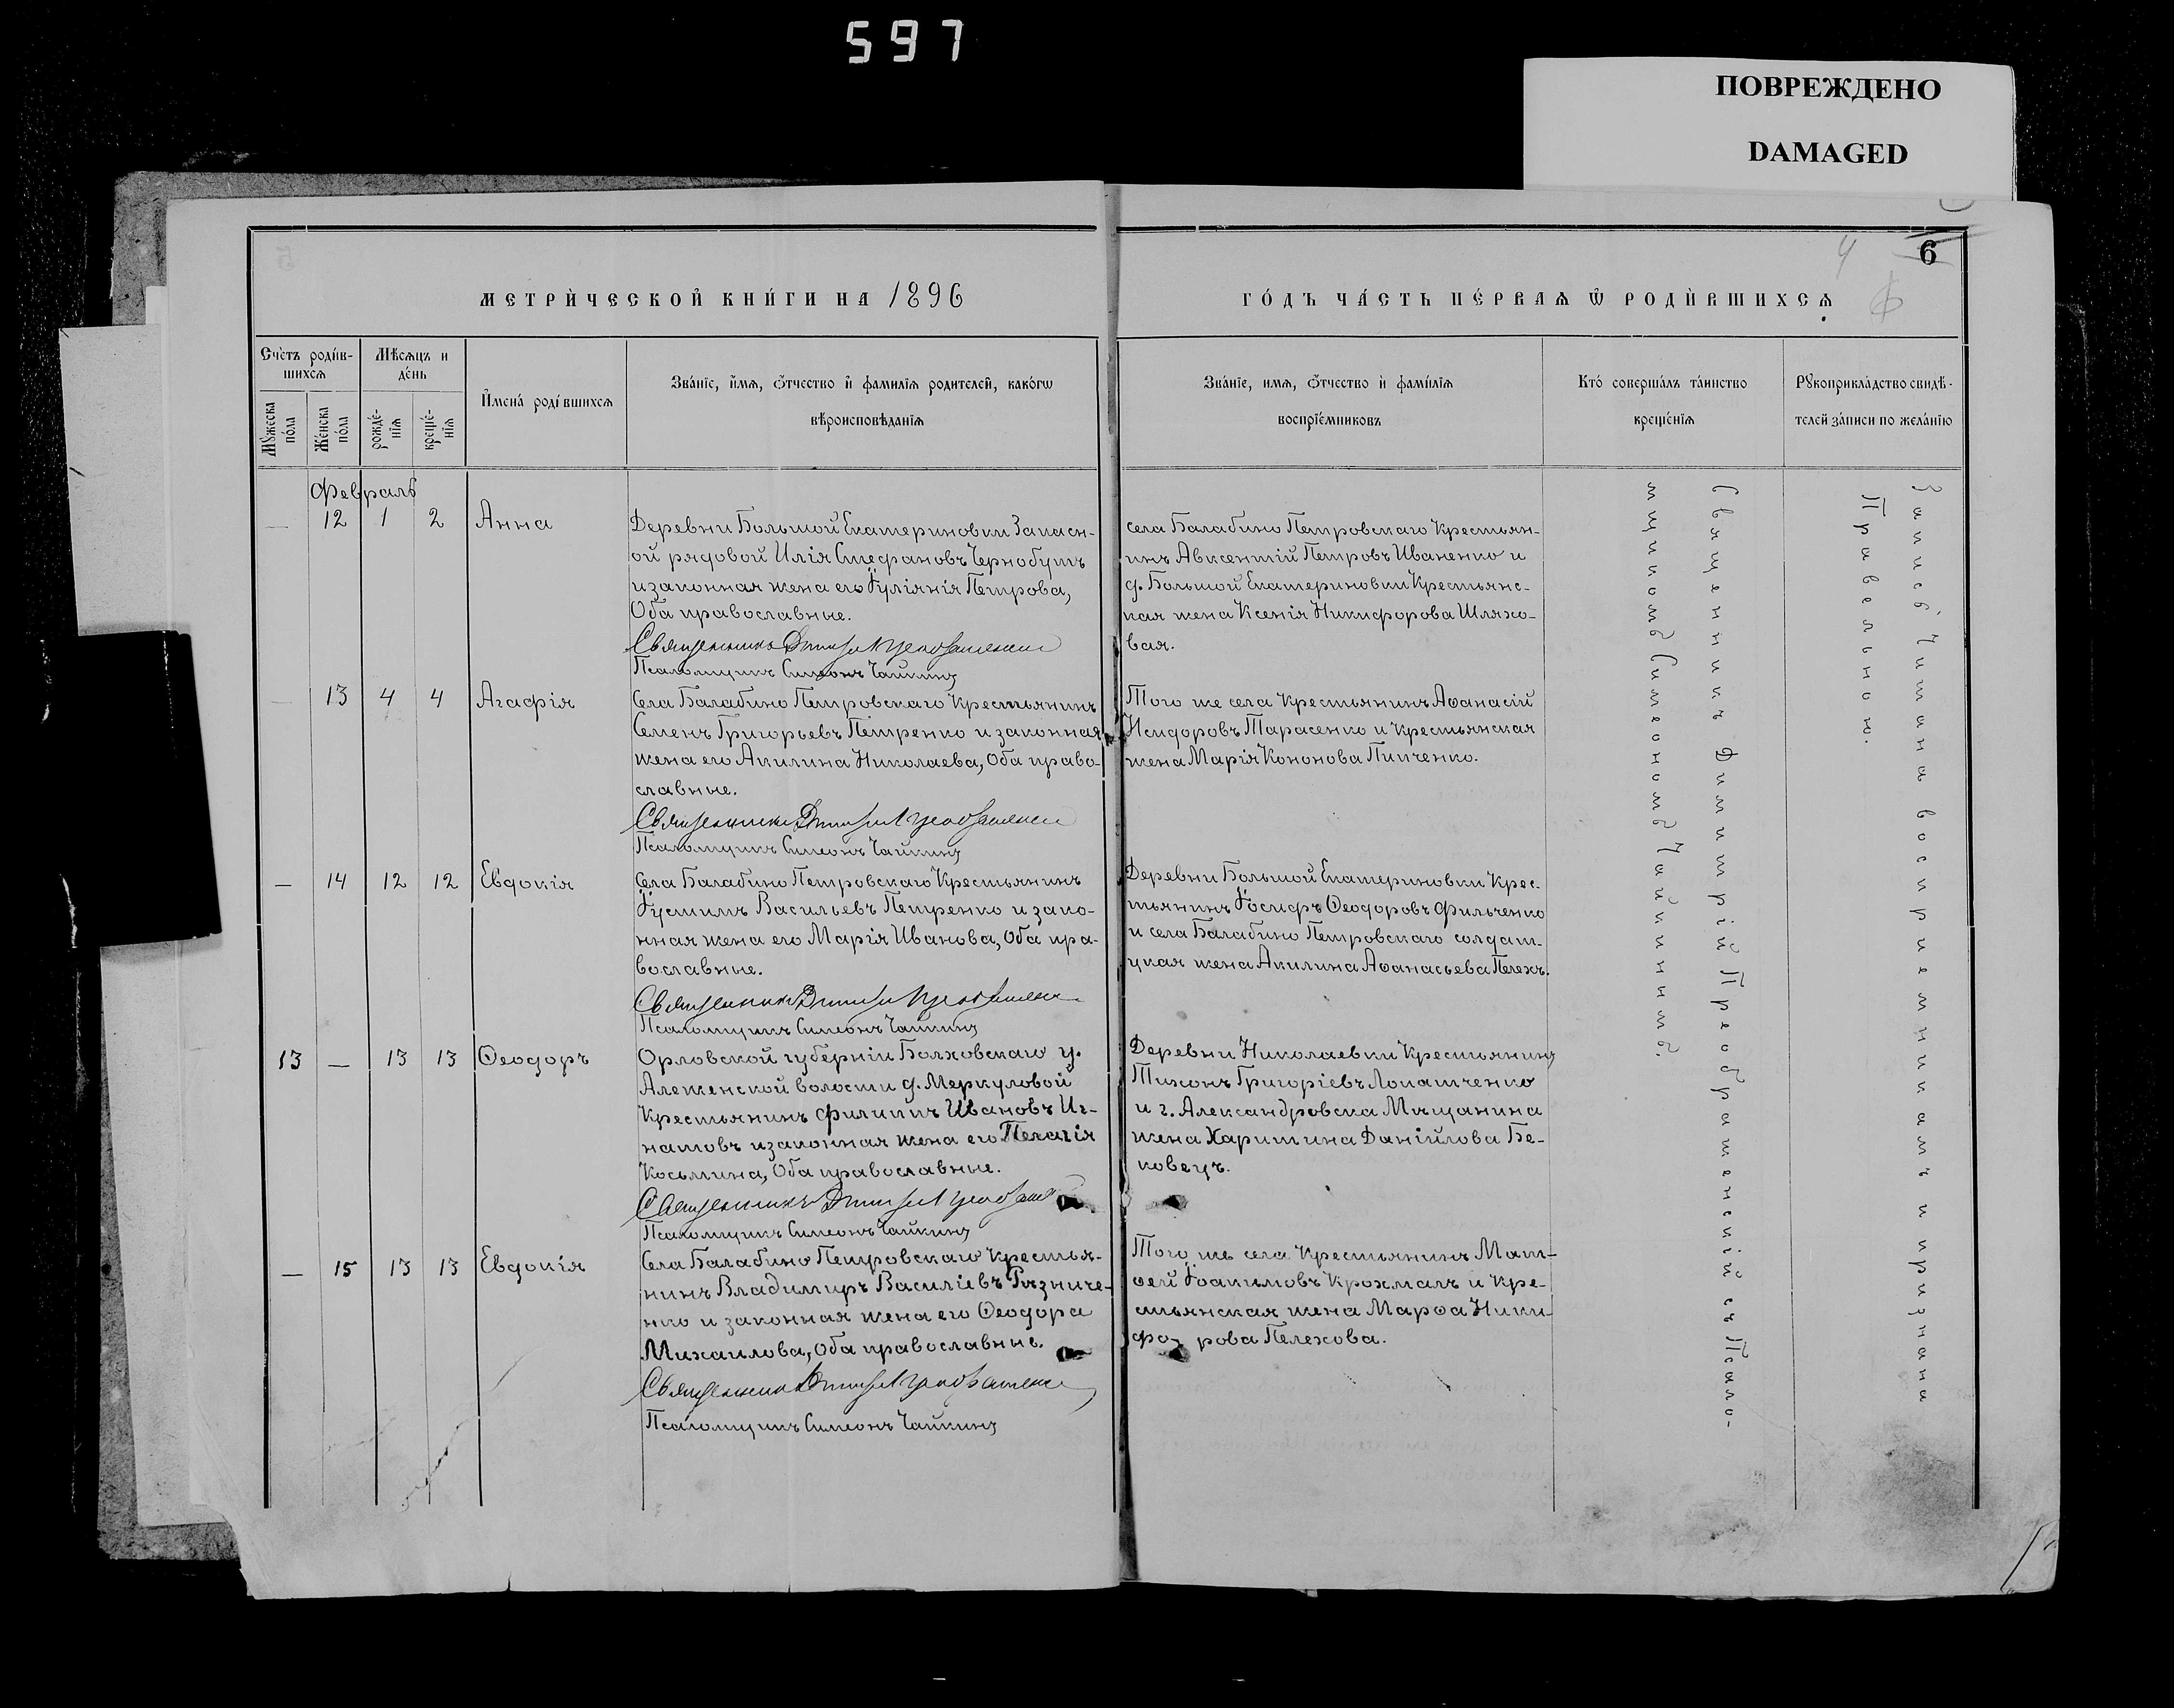 597
ПОВРЕЖДЕНО
DAMAGED
6
4
МЕТРИ́ЧЕСКОЙ КНИ́ГИ НА 1896
ГО́ДЪ ЧА́СТЬ ПЕ́РВАѦ Ѿ РОДИ́ВШИХСѦ
Сче́тъ роди́в-
шихсѧ
Мѣ́сѧцъ и
де́нь
Мꙋ́жеска
по́ла
Же́нска
по́ла
рожде́-
нїѧ
креще́-
нїѧ
И҆мена́ роди́вшихсѧ
Зва́нїе, и҆́мѧ, ѻ҆́тчество и҆ фами́лїѧ роди́телей, како́гѡ
вѣроисповѣ́данїѧ
Зва́нїе, имѧ, ѻ҆́тчество и҆ фами́лїѧ
воспрїе́мниковъ
Кто́ соверша́лъ та́инство
креще́нїѧ
Рꙋкоприкла́дство свидѣ́-
телей за́писи по жела́нїю
Февраль
— 12 1 2 Анна
Деревни Большой Екатериновки Запасн-
ой рядовой Илія Стефановъ Чернобукъ
и законная жена его Іуліянія Петрова,
Оба православные.
Священникъ Димитрій Преображенскій
Псаломщикъ Симеонъ Чайкинъ
села Балабино Петровскаго Крестьян-
инъ Авксентій Петровъ Иваненко и
д. Большой Екатериновки Крестьянс-
кая жена Ксенія Никифорова Шляхо-
вая.
— 13 4 4 Агафія
Села Балабино Петровскаго Крестьянинъ
Семенъ Григорьевъ Петренко и законная
жена его Акилина Николаева, Оба право-
славные.
Священникъ Димитрій Преображенскій
Псаломщикъ Симеонъ Чайкинъ
Того же села Крестьянинъ Аѳанасій
Исидоровъ Тарасенко и Крестьянская
жена Марія Кононова Пипченко.
— 14 12 12 Евдокія
Села Балабино Петровскаго Крестьянинъ
Іустинъ Васильевъ Петренко и зако-
нная жена его Марія Иванова, Оба пра-
вославные.
Священникъ Димитрій Преображенскій
Псаломщикъ Симеонъ Чайкинъ
Деревни Большой Екатериновки Крес-
тьянинъ Іосифъ Ѳеодоровъ Фильченко
и села Балабино Петровскаго солдат-
цкая жена Акилина Аѳанасьева Пелехъ.
13 — 13 13 Ѳеодоръ
Орловской губерніи Болховскаго у.
Алешенской волости д. Меркуловой
Крестьянинъ Филиппъ Ивановъ Иг-
натовъ и законная жена его Пелагія
Косьмина, Оба православные.
Священникъ Димитрій Преображенскій
Псаломщикъ Симеонъ Чайкинъ
Деревни Николаевки Крестьянинъ
Тихонъ Григоріевъ Лопатченко
и г. Александровска Мѣщанина
жена Харитина Даніилова Бе-
ковецъ.
— 15 13 13 Евдокія
Села Балабино Петровскаго Крестья-
нинъ Владимиръ Василіевъ Рѣзниче-
нко и законная жена его Ѳеодора
Михаилова, Оба православные.
Священникъ Димитрій Преображенскій
Псаломщикъ Симеонъ Чайкинъ
Того же села Крестьянинъ Мат-
ѳей Іоакимовъ Крохмаль и Кре-
стьянская жена Марѳа Ники-
фо- рова Пелехова.
Священникъ Димитрій Преображенскій съ Псало-
мщикомъ Симеономъ Чайкинымъ.
Запись читана воспріемникамъ и признана
Правельною.